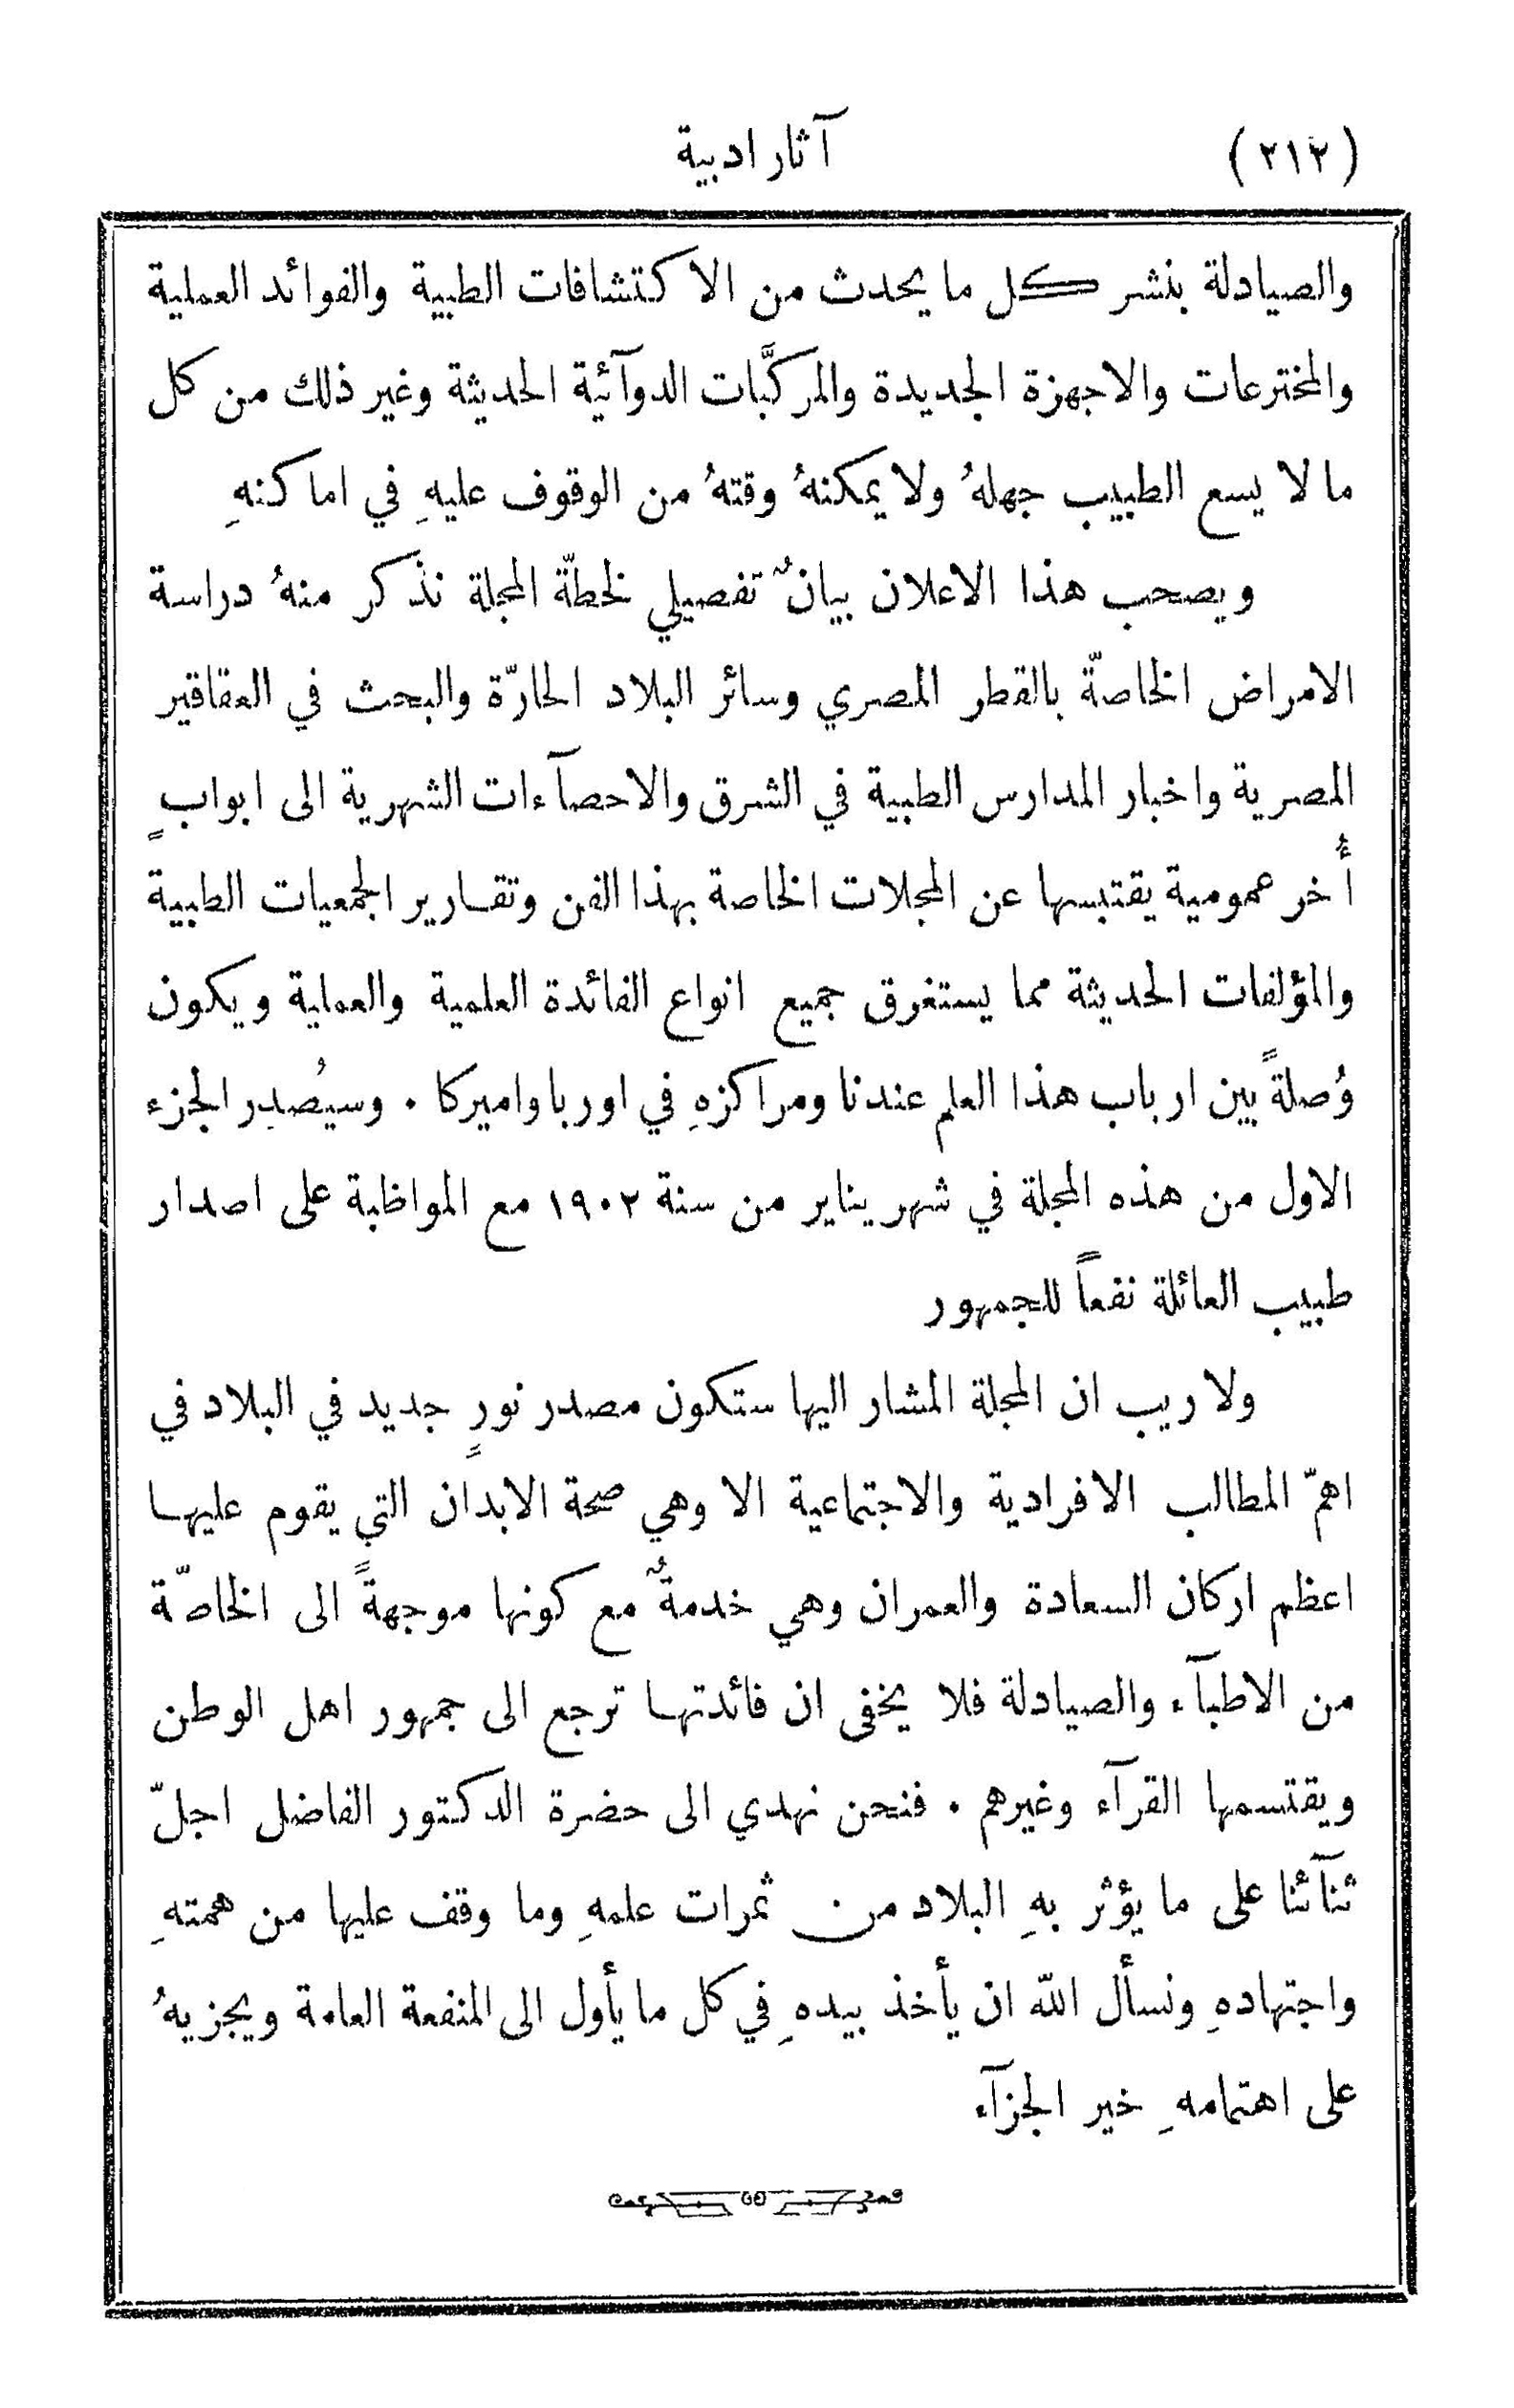 (٢١٢)
آثار ادبية
والصيادلة بنشر كل ما يحدث من الاكتشافات الطبية والفوائد العملية
والمخترعات والاجهزة الجديدة والمركَّبات الدوآئية الحديثة وغير ذلك من كل
ما لا يسع الطبيب جهلهُ ولا يمكنهُ وقتهُ من الوقوف عليهِ في اماكنهِ
ويصحب هذا الاعلان بيانٌ تفصيلي لخطّة المجلة نذكر منهُ دراسة
الامراض الخاصّة بالقطر المصري وسائر البلاد الحارّة والبحث في العقاقير
المصرية واخبار المدارس الطبية في الشرق والاحصآءات الشهرية الى ابوابٍ
أُخر عمومية يقتبسها عن المجلات الخاصة بهذا الفن وتقارير الجمعيات الطبية
والمؤلفات الحديثة مما يستغرق جميع انواع الفائدة العلمية والعملية ويكون
وُصلةً بين ارباب هذا العلم عندنا ومراكزهِ في اوربا واميركا . وسيُصدِر الجزء
الاول من هذه المجلة في شهر يناير من سنة ١٩٠٢ مع المواظبة على اصدار
طبيب العائلة نفعاً للجمهور
ولا ريب ان المجلة المشار اليها ستكون مصدر نورٍ جديد في البلاد في
اهمّ المطالب الافرادية والاجتماعية الا وهي صحة الابدان التي يقوم عليها
اعظم اركان السعادة والعمران وهي خدمةٌ مع كونها موجهةً الى الخاصّة
من الاطبآء والصيادلة فلا يخفى ان فائدتها ترجع الى جمهور اهل الوطن
ويقتسمها القرآء وغيرهم . فنحن نهدي الى حضرة الدكتور الفاضل اجلّ
ثنآئنا على ما يؤثر بهِ البلاد من ثمرات علمهِ وما وقف عليها من همتهِ
واجتهادهِ ونسأل الله ان يأخذ بيدهِ في كل ما يأول الى المنفعة العامة ويجزيهُ
على اهتمامهِ خير الجزآء